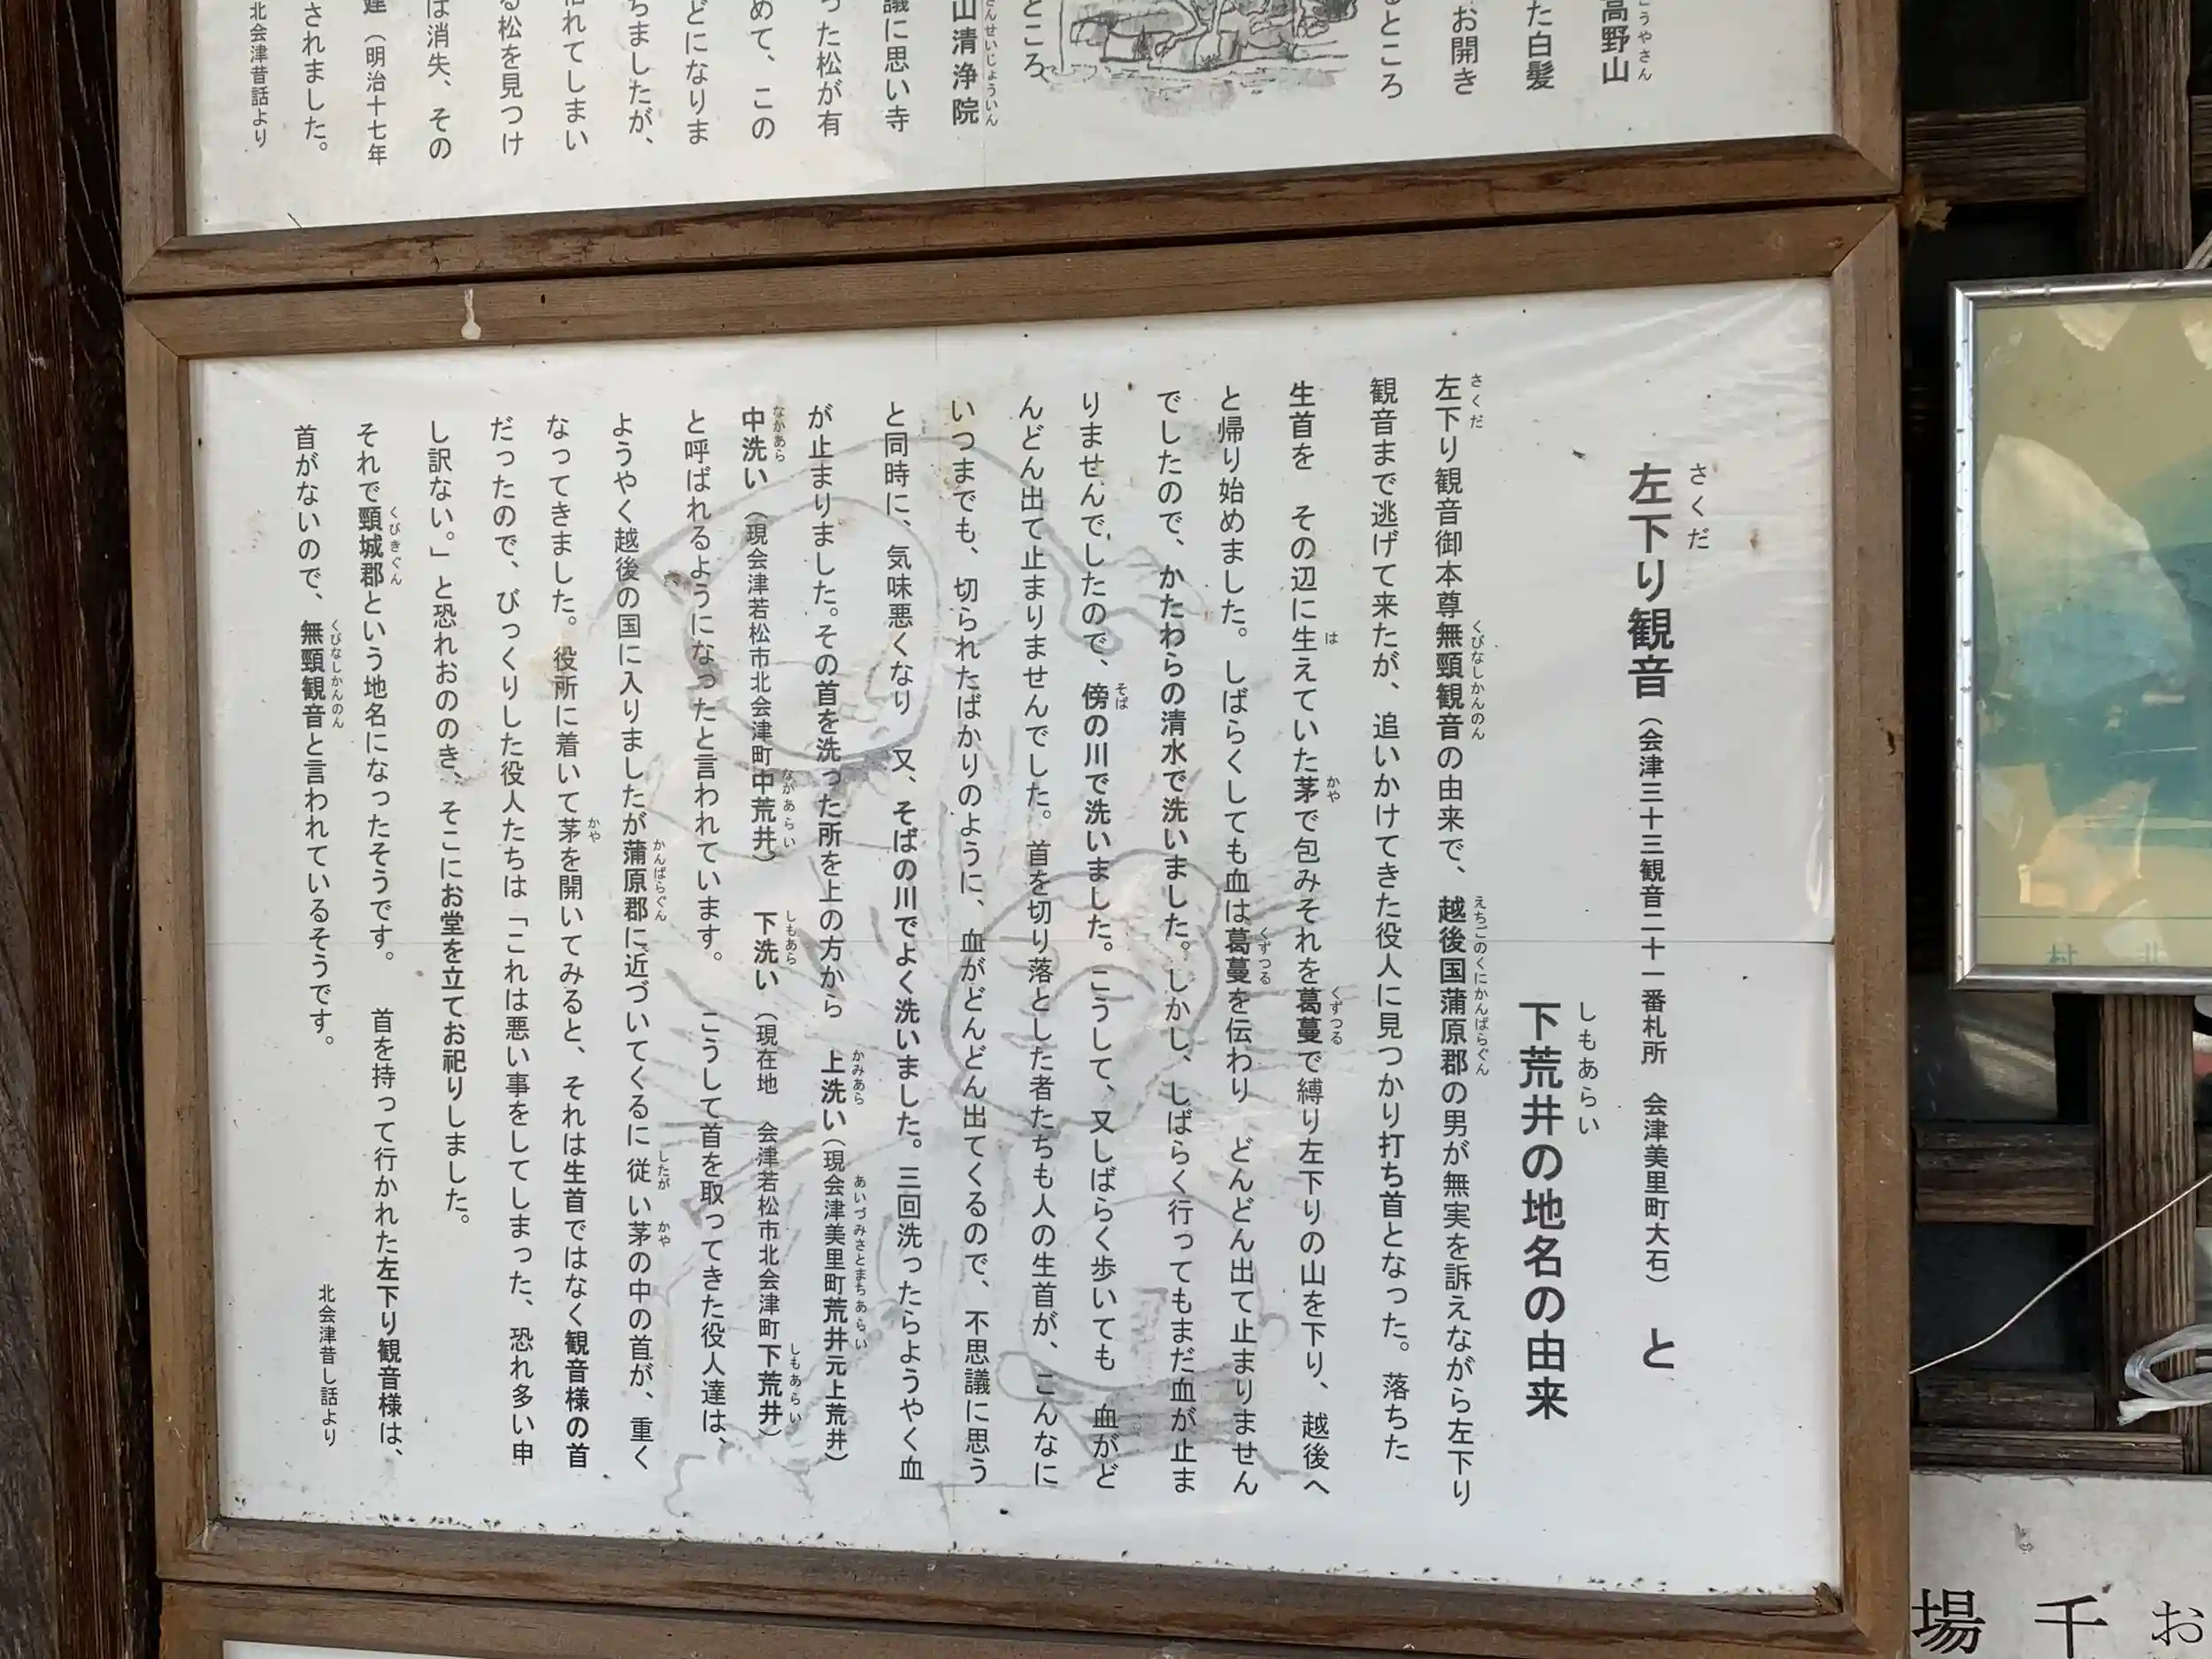 高野山
こうやさん
た白髪
お開き
るところ
ところ
山清浄院
さんせいじょういん
議に思い寺
った松が有
めて、この
どになりま
ちましたが、
枯れてしまい
る松を見つけ
は消失、その
建（明治十七年
されました。
北会津昔話より
左下り観音（会津三十三観音二十一番札所　会津美里町大石）　と
さくだ
下荒井の地名の由来
しもあらい
左下り観音御本尊無頸観音の由来で、越後国蒲原郡の男が無実を訴えながら左下り
さくだ　くびなしかんのん　えちごのくにかんばらぐん
観音まで逃げて来たが、追いかけてきた役人に見つかり打ち首となった。落ちた
生首を　その辺に生えていた茅で包みそれを葛蔓で縛り左下りの山を下り、越後へ
は　かや　くずつる
と帰り始めました。しばらくしても血は葛蔓を伝わり　どんどん出て止まりません
くずつる
でしたので、かたわらの清水で洗いました。しかし、しばらく行ってもまだ血が止ま
りませんでしたので、傍の川で洗いました。こうして、又しばらく歩いても　血がど
そば
んどん出て止まりませんでした。首を切り落とした者たちも人の生首が、こんなに
いつまでも、切られたばかりのように、血がどんどん出てくるので、不思議に思う
と同時に、気味悪くなり　又、そばの川でよく洗いました。三回洗ったらようやく血
が止まりました。その首を洗った所を上の方から　上洗い（現会津美里町荒井元上荒井）
かみあら　あいづみさとまちあらい
中洗い（現会津若松市北会津町中荒井）　下洗い（現在地　会津若松市北会津町下荒井）
なかあら　なかあらい　しもあら　しもあらい
と呼ばれるようになったと言われています。　こうして首を取ってきた役人達は、
ようやく越後の国に入りましたが蒲原郡に近づいてくるに従い茅の中の首が、重く
かんばらぐん　したが　かや
なってきました。役所に着いて茅を開いてみると、それは生首ではなく観音様の首
かや
だったので、びっくりした役人たちは「これは悪い事をしてしまった、恐れ多い申
し訳ない。」と恐れおののき、そこにお堂を立てお祀りしました。
それで頸城郡という地名になったそうです。　首を持って行かれた左下り観音様は、
くびきぐん
首がないので、無頸観音と言われているそうです。
くびなしかんのん
北会津昔し話より
村
場　千　お